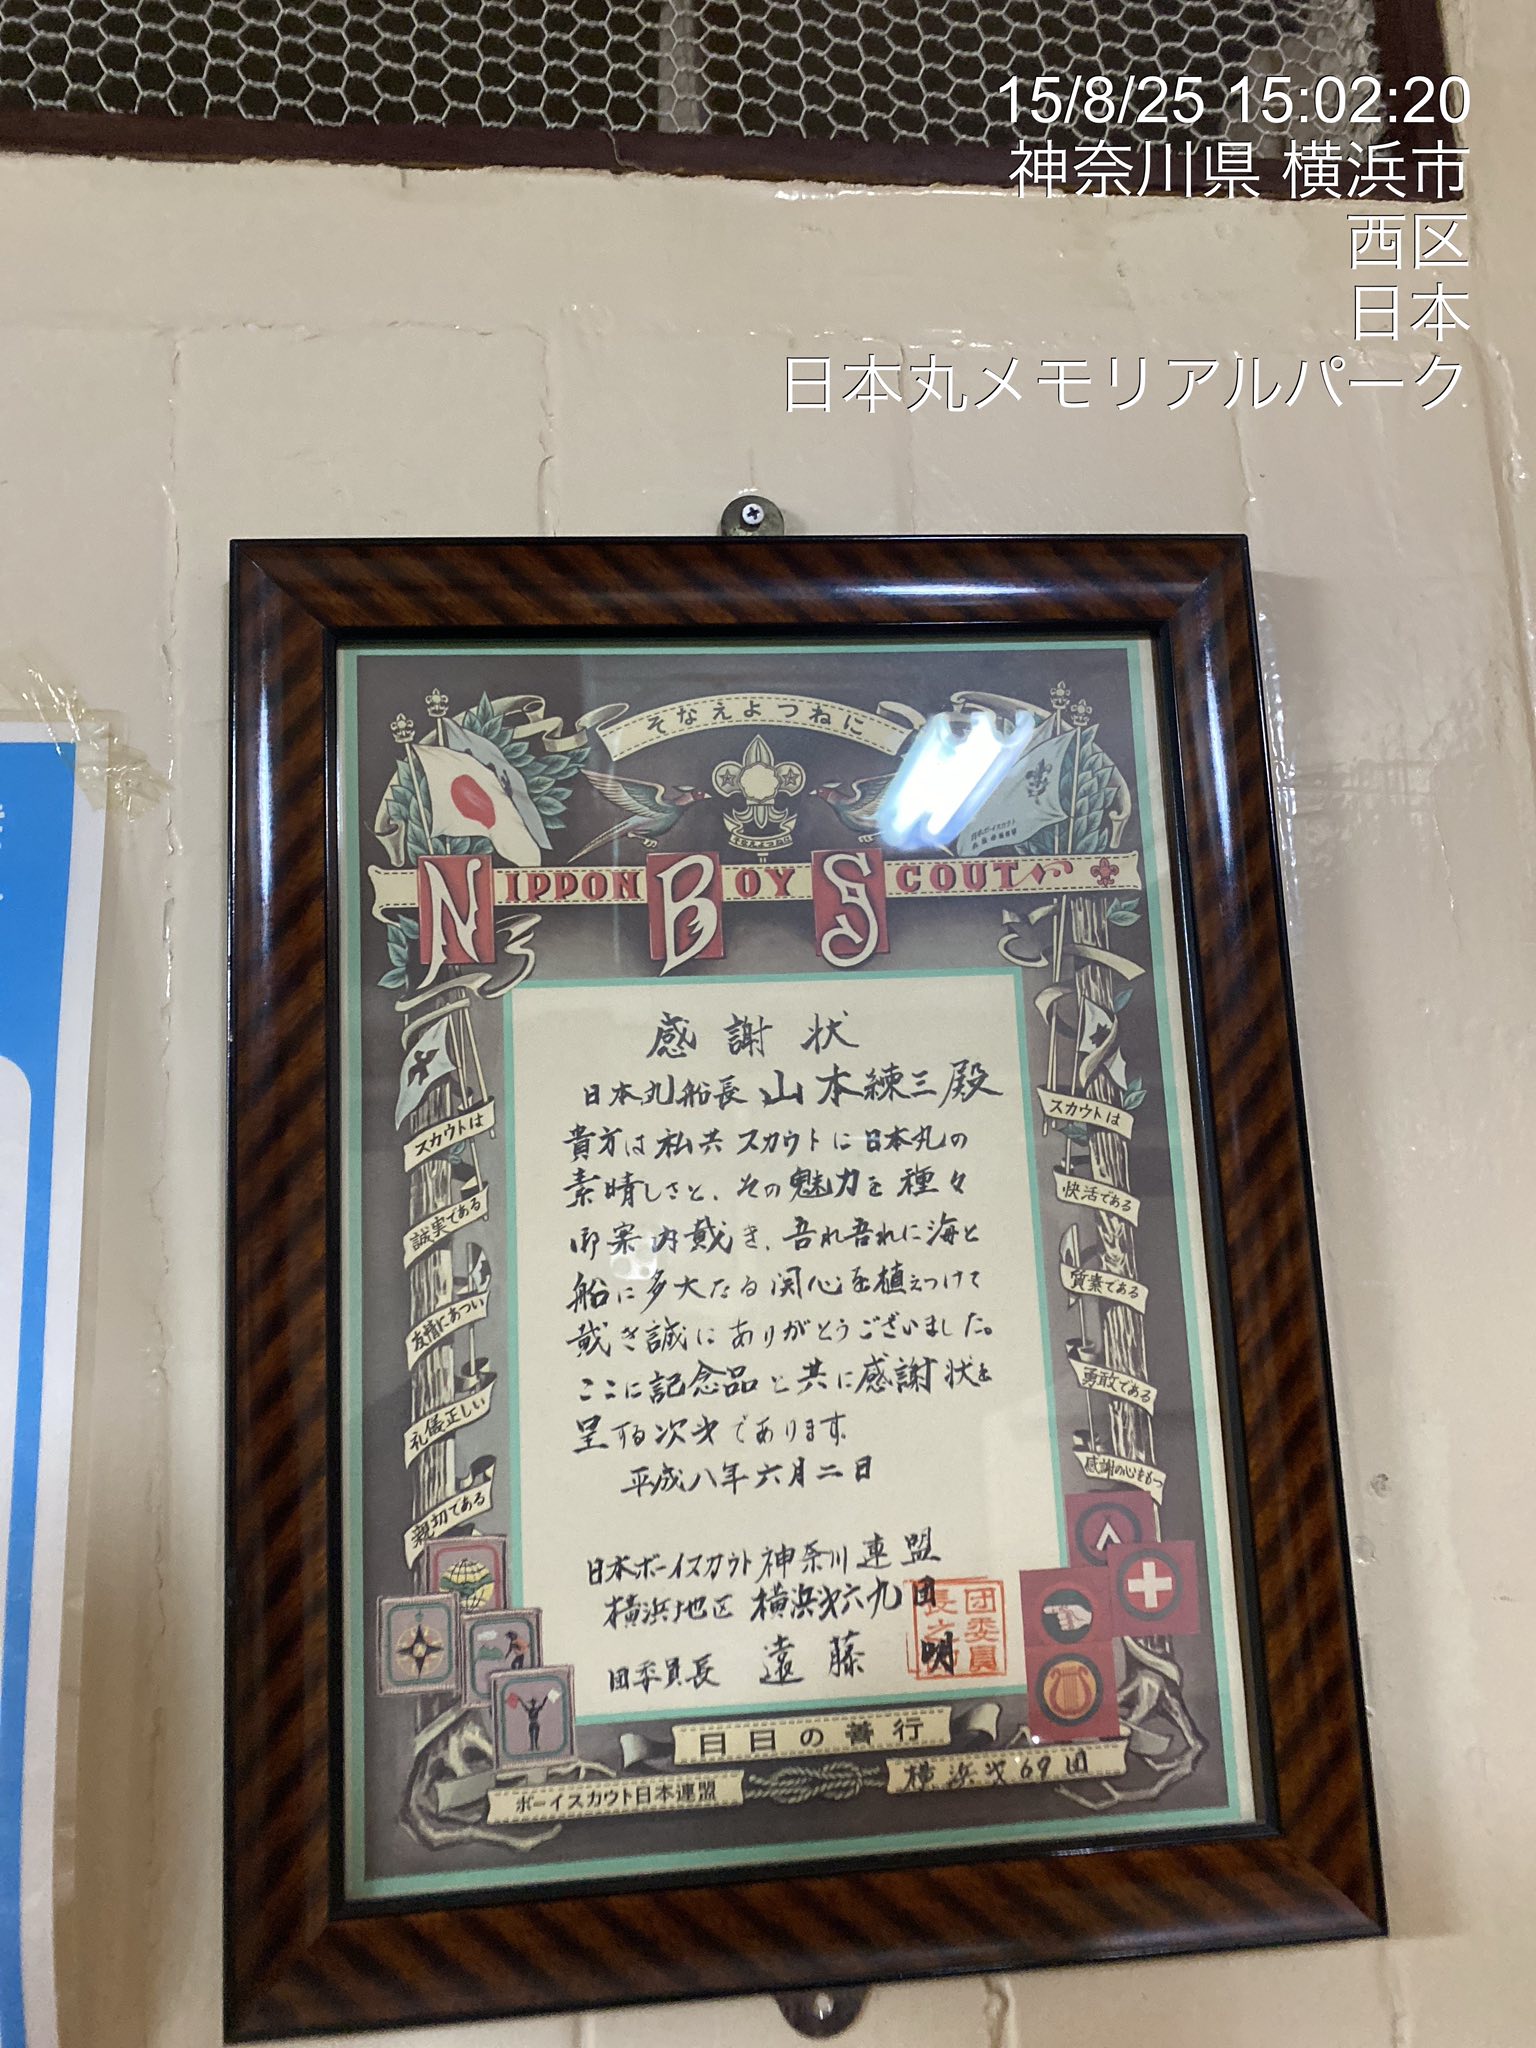 15/8/25 15:02:20
神奈川県 横浜市
西区
日本
日本丸メモリアルパーク
そなえよつねに
そなえよつねに
NIPPON BOY SCOUT
感謝状
日本丸船長 山本練三殿
貴方は私共スカウトに日本丸の
素晴しさと、その魅力を種々
御案内戴き、吾れ吾れに海と
船に多大なる関心を植えつけて
戴き誠にありがとうございました。
ここに記念品と共に感謝状を
呈する次第であります。
平成八年六月二日
日本ボーイスカウト神奈川連盟
横浜地区 横浜第六九団
団委員長 遠藤 明
スカウトは
誠実である
友情にあつい
礼儀正しい
親切である
スカウトは
快活である
質素である
勇敢である
感謝の心をもつ
日日の善行
ボーイスカウト日本連盟
横浜第69団